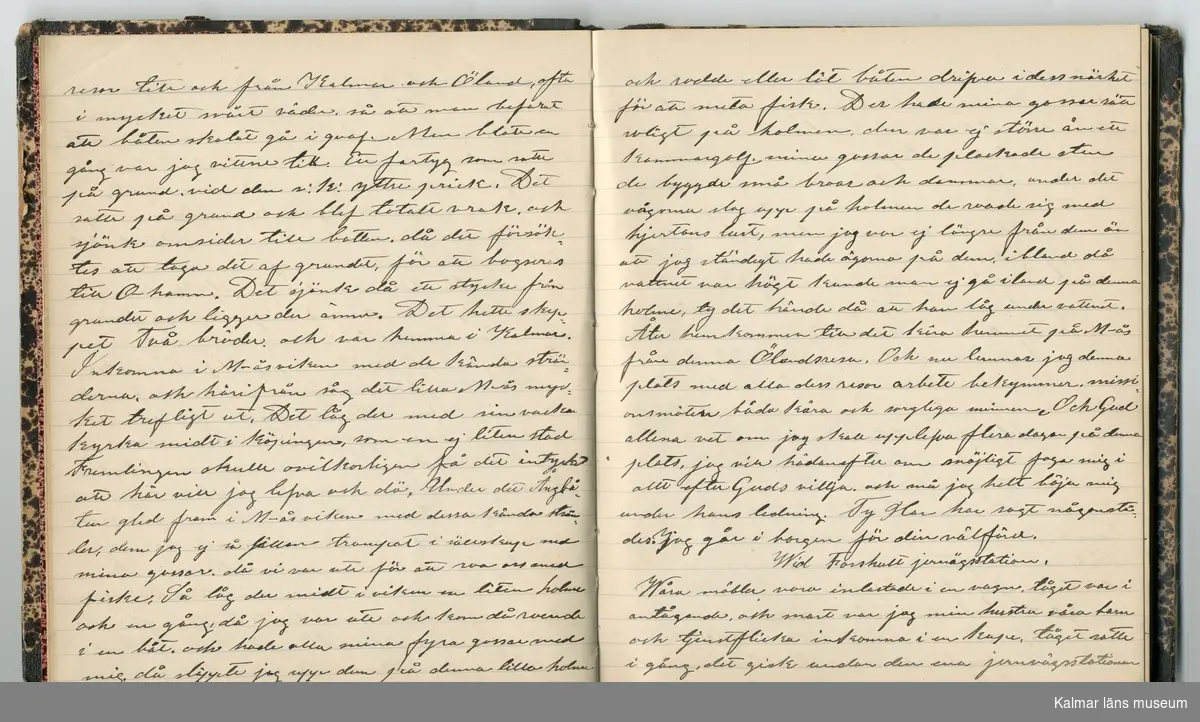 resor till och från Kalmar och Öland, ofta
i mycket svårt väder. så att man befarat
att båten skolat gå i qvaf. Men blott en
gång var jag vittne till. Ett fartyg som satte
på grund. vid den s: k: yttre prick. Det
satte på grund och blef totalt vrak, och
sjönk omsider till botten. då det försök-
tes att taga det af grundet, för att bogseras
till O hamn. Det sjönk då ett stycke från
grundet och ligger der ännu. Det hette skep-
pet Två bröder. och var hemma i Kalmar.
Inkomna i M-åsviken med de kända strä
derna. och härifrån såg det lilla M-ås myc-
ket trefligt ut. Det låg der med sin vackra
kyrka midt i köpingen, som en ej liten stad
Fremlingen skulle ovilkorligen få det intrycket
att här vill jag lefva och dö. Under det Ångbå-
ten gled fram i M-åsviken med dessa kända strän-
der, dem jag ej så sällan trampat i sällskap med
mina gossar. då vi var ute för att roa oss med
fiske. Så låg der midt i viken en liten holme
och en gång, då jag var ute och kom då roende
i en båt. och hade alla mina fyra gossar med
mig, då släppte jag upp dem på denna lilla holme
och rodde eller lät båten drifva i dess närhet
för att meta fisk. Der hade mina gossar rätt
roligt på holmen, den var ej större än ett
kammargolf. mina gossar de plockade sten
de byggde små broar och dammar, under det
vågorna slog upp på holmen de roade sig med
hjertans lust, men jag var ej längre från dem än
att jag ständigt hade ögonen på dem, ibland då
vattnet var högt kunde man ej gå iland på denna
holme, ty det hände då att han låg under vattnet.
Åter hemkommen till det kära hemmet på M-ås
från denna Ölandsresa. Och nu lemnar jag denna
plats med alla dess resor arbete bekymmer. missi
onsmöten båda kära och sorgliga minnen. Och Gud
allena vet om jag skall upplefva flera dagar på denna
plats, jag vill hädanefter om möjligt foga mig i
allt efter Guds villja. och må jag helt böja mig
under hans ledning. Ty Han har sagt någonstä-
des. Jag går i borgen för din välfärd.
Wid Forshult jernvägsstation.
Wåra möbler voro inlastade i en vagn, tåget var i
antågande, och snart var jag min hustru våra barn
och tjenstflicka inkomna i en kupe, tåget satte
i gång, det gick undan den ena jernvägsstationen
Kalmar läns museum